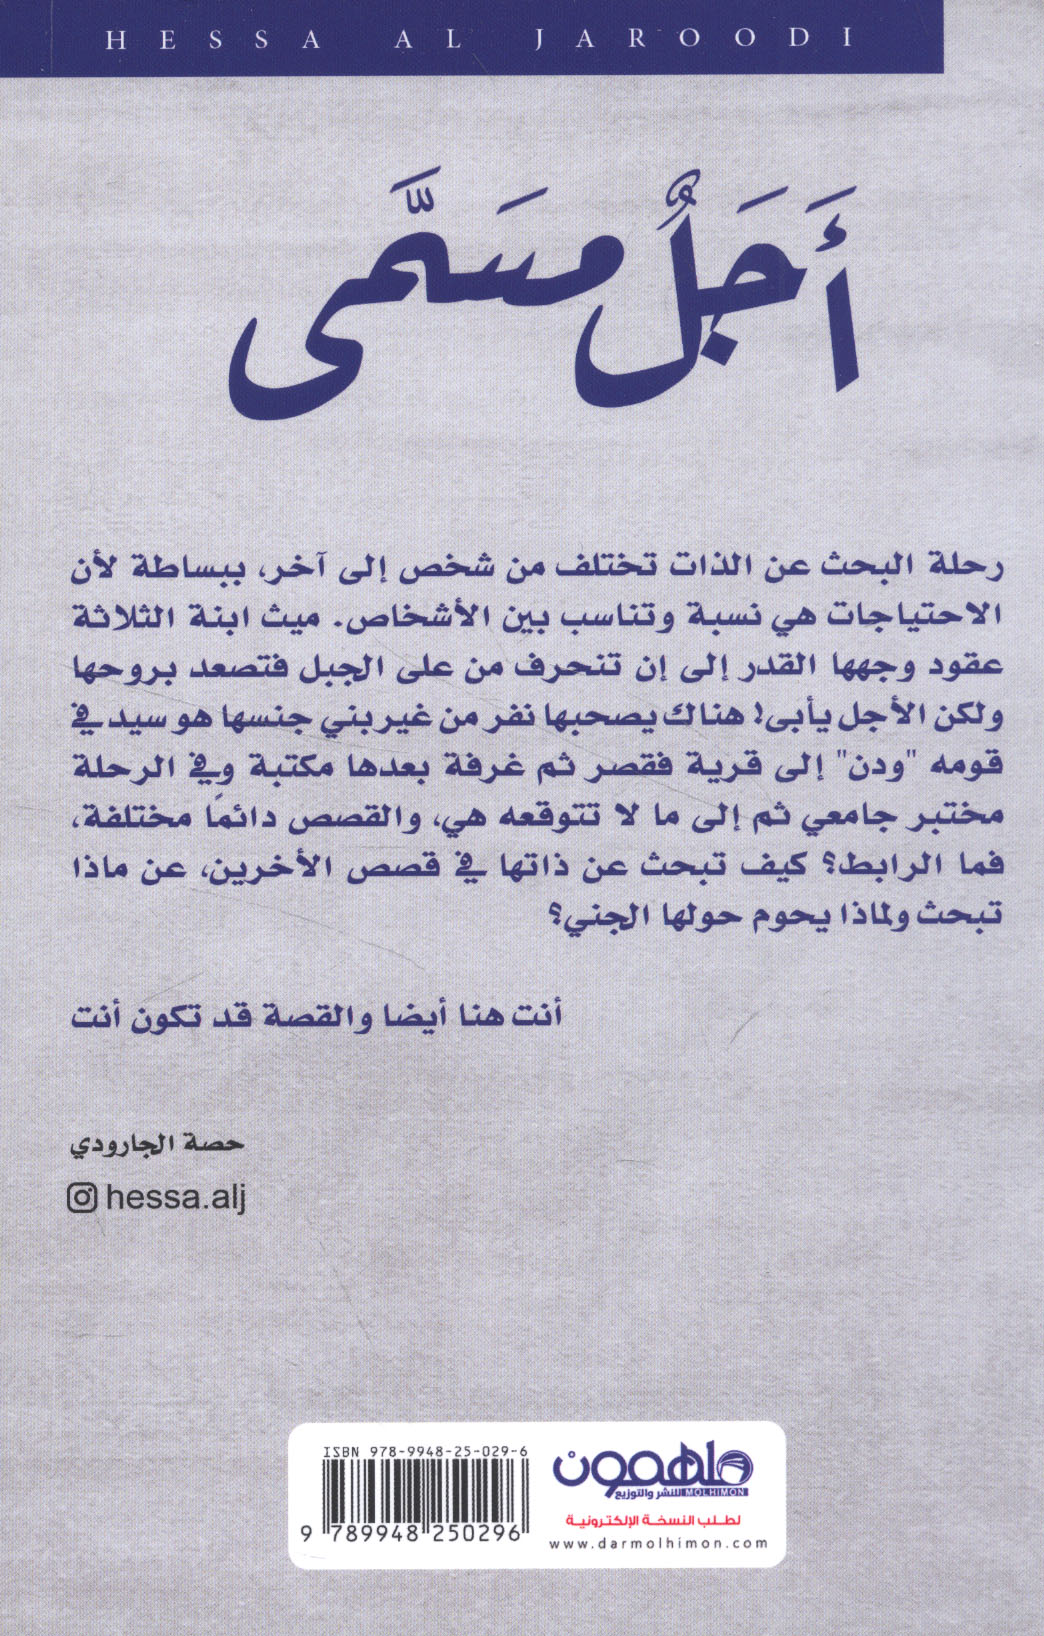 HESSA AL JAROODI
أَجَلٌ مسَمَّى
رحلة البحث عن الذات تختلف من شخص إلى آخر، ببساطة لأن
الاحتياجات هي نسبة وتناسب بين الأشخاص. ميث ابنة الثلاثة
عقود وجهها القدر إلى إن تنحرف من على الجبل فتصعد بروحها
ولكن الأجل يأبى! هناك يصحبها نفر من غير بني جنسها هو سيد في
قومه "ودن" إلى قرية فقصر ثم غرفة بعدها مكتبة وفي الرحلة
مختبر جامعي ثم إلى ما لا تتوقعه هي، والقصص دائمًا مختلفة،
فما الرابط؟ كيف تبحث عن ذاتها في قصص الأخرين، عن ماذا
تبحث ولماذا يحوم حولها الجني؟
أنت هنا أيضا والقصة قد تكون أنت
حصة الجارودي
hessa.alj
ISBN 978-9948-25-029-6
9 789948 250296
ملهمون
للنشر والتوزيع MOLHIMON
لطلب النسخة الإلكترونية
www.darmolhimon.com